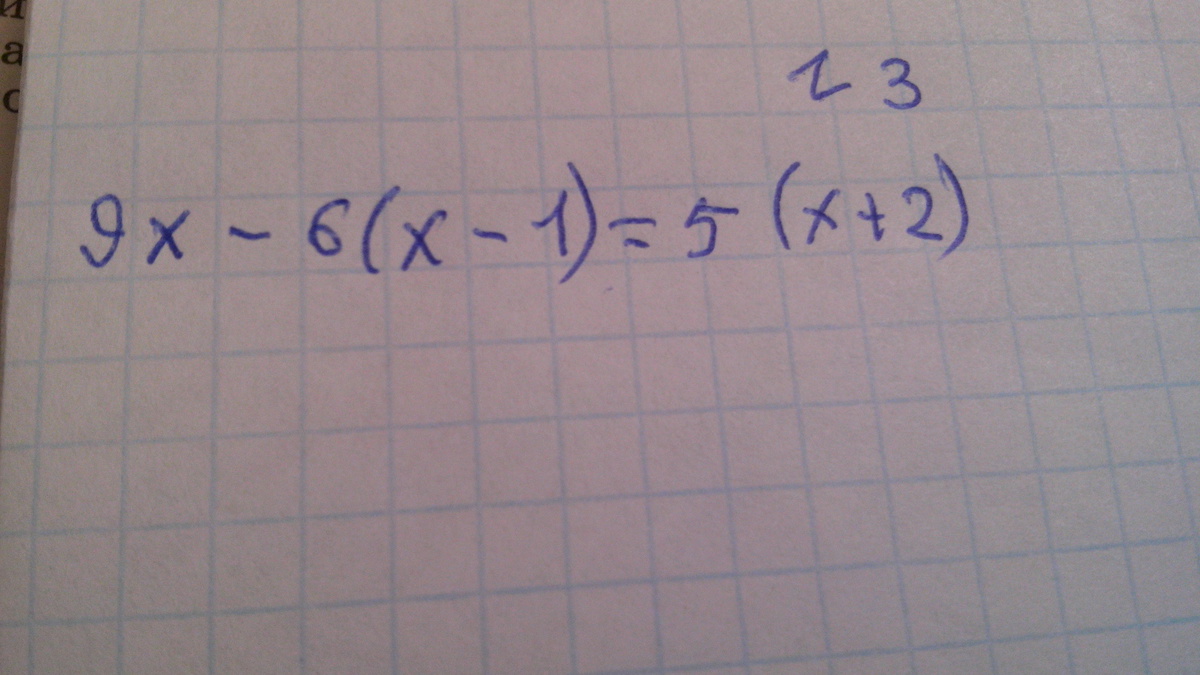 и
а
с
9x - 6(x - 1) = 5 (x + 2)